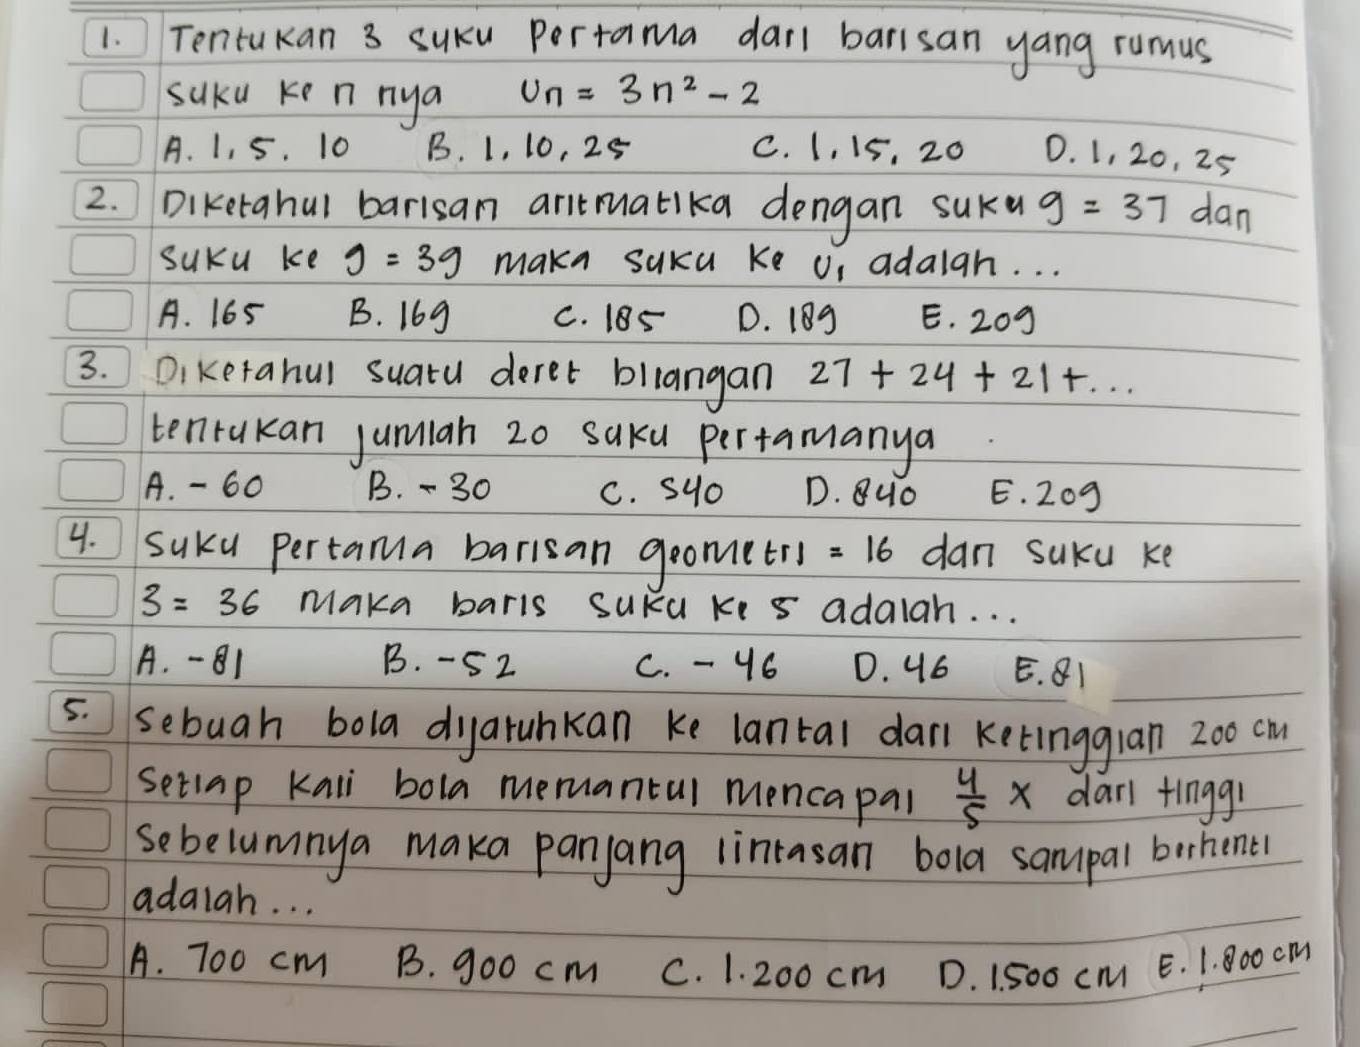 1. Tentukan 3 suku pertama dari barisan yang rumus
suku ke n nya Un = 3n² - 2
A. 1, 5, 10 B. 1, 10, 25 C. 1, 15, 20 D. 1, 20, 25
2. Diketahui barisan aritmatika dengan suku 9 = 37 dan
suku ke 9 = 39 maka suku ke U₁ adalah...
A. 165 B. 169 C. 185 D. 189 E. 209
3. Diketahui suatu deret bilangan 27 + 24 + 21 + ...
tentukan jumlah 20 suku pertamanya
A. - 60 B. - 30 C. 540 D. 840 E. 209
4. Suku pertama barisan geometri = 16 dan suku ke
3 = 36 maka baris suku ke 5 adalah...
A. -81 B. -52 C. - 46 D. 46 E. 81
5. Sebuah bola dijatuhkan ke lantai dari ketinggian 200 cm
Setiap kali bola memantul mencapai 4/5 x dari tinggi
Sebelumnya maka panjang lintasan bola sampai berhenti
adalah...
A. 700 cm B. 900 cm C. 1.200 cm D. 1.500 cm E. 1.800 cm